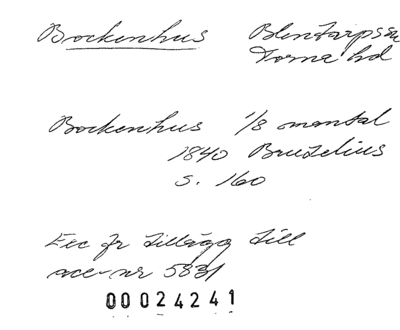 Bockenhus Blentarps sn
Torna hd
Bockenhus 1/8 mantal
1840 Bruzelius
s. 160
Exc fr tillägg till
acc-nr 5831
00024241